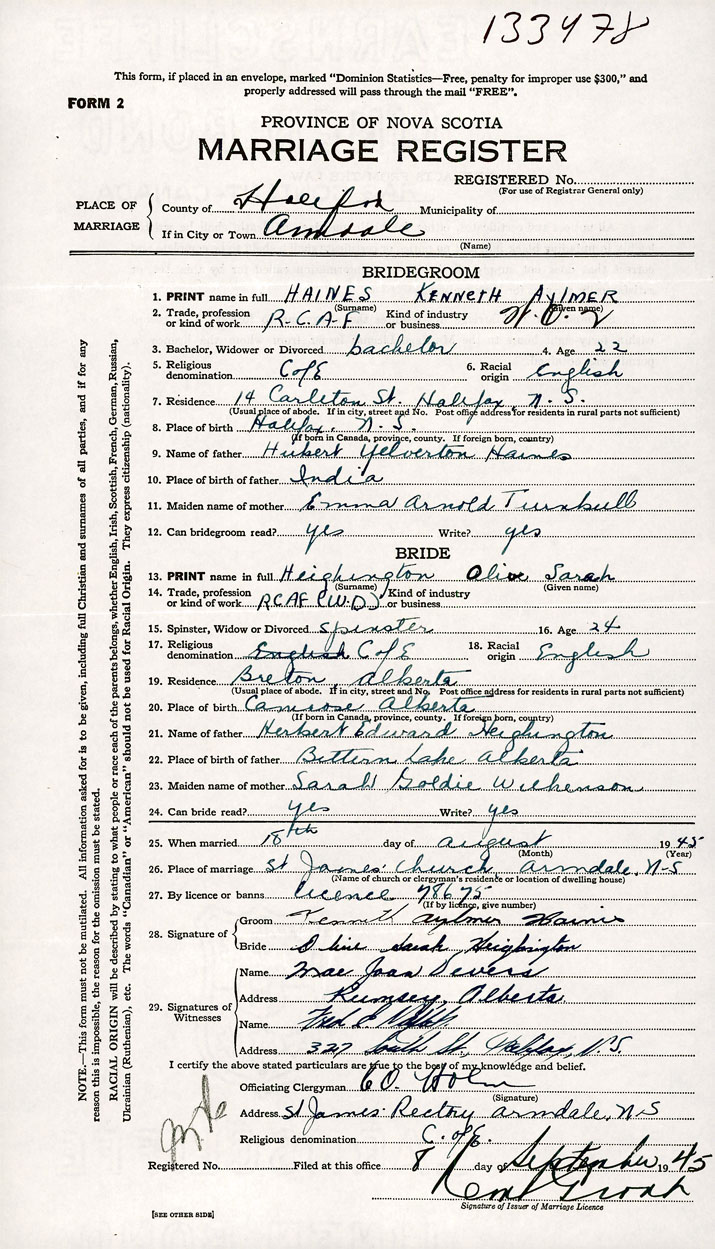 133478
This form, if placed in an envelope, marked "Dominion Statistics—Free, penalty for improper use $300," and
properly addressed will pass through the mail "FREE".
FORM 2
PROVINCE OF NOVA SCOTIA
MARRIAGE REGISTER
REGISTERED No.
(For use of Registrar General only)
PLACE OF MARRIAGE
County of Halifax Municipality of
If in City or Town Armdale
(Name)
BRIDEGROOM
1. PRINT name in full HAINES KENNETH AYLMER
(Surname) (Given name)
2. Trade, profession or kind of work R.C.A.F Kind of industry or business W.O. 2
3. Bachelor, Widower or Divorced bachelor 4. Age 22
5. Religious denomination C of E 6. Racial origin English
7. Residence 14 Carleton St. Halifax, N.S.
(Usual place of abode. If in city, street and No. Post office address for residents in rural parts not sufficient)
8. Place of birth Halifax, N.S.
(If born in Canada, province, county. If foreign born, country)
9. Name of father Hubert Yelverton Haines
10. Place of birth of father India
11. Maiden name of mother Emma Arnold Turnbull
12. Can bridegroom read? yes Write? yes
BRIDE
13. PRINT name in full Heighington Olive Sarah
(Surname) (Given name)
14. Trade, profession or kind of work RCAF (W.D) Kind of industry or business
15. Spinster, Widow or Divorced spinster 16. Age 24
17. Religious denomination English C of E 18. Racial origin English
19. Residence Breton, Alberta
(Usual place of abode. If in city, street and No. Post office address for residents in rural parts not sufficient)
20. Place of birth Camrose Alberta
(If born in Canada, province, county. If foreign born, country)
21. Name of father Herbert Edward Heighington
22. Place of birth of father Bittern Lake Alberta
23. Maiden name of mother Sarah Goldie Wilkenson
24. Can bride read? yes Write? yes
25. When married 18th day of august 1945
(Month) (Year)
26. Place of marriage St James' Church Armdale, N-S
(Name of church or clergyman's residence or location of dwelling house)
27. By licence or banns licence 78675
(If by licence, give number)
28. Signature of Groom Kenneth Aylmer Haines
Bride Olive Sarah Heighington
29. Signatures of Witnesses
Name Mae Joan Severs
Address Rumsey, Alberta
Name Fred E.
Address 327 South St., Halifax, N.S.
I certify the above stated particulars are true to the best of my knowledge and belief.
Officiating Clergyman
(Signature)
Address St James' Rectory Armdale, N-S
Religious denomination C. of E.
Registered No. Filed at this office 8 day of September 1945
Signature of Issuer of Marriage Licence
[SEE OTHER SIDE]
NOTE.—This form must not be mutilated. All information asked for is to be given, including full Christian and surnames of all parties, and if for any
reason this is impossible, the reason for the omission must be stated.
RACIAL ORIGIN will be described by stating to what people or race each of the parents belongs, whether English, Irish, Scottish, French, German, Russian,
Ukrainian (Ruthenian), etc. The words "Canadian" or "American" should not be used for Racial Origin. They express citizenship (nationality).